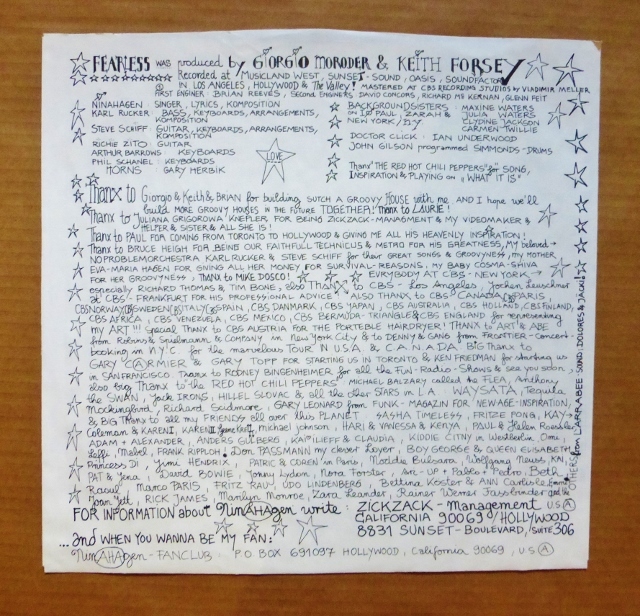 FEARLESS WAS produced by GiORGiO MORODER & KEiTH FORSEY
Recorded at MUSICLAND WEST, SUNSET-SOUND, OASIS, SOUNDFACTORY
IN LOS ANGELES, HOLLYWOOD & The Valley! MASTERED AT CBS RECORDING STUDIOS by VLADIMIR MELLER
FIRST ENGINEER BRIAN REEVES, Second ENGINEERS DAVID CONCORS, RICHARD McKERNAN, GLENN FEIT
NINAHAGEN SINGER, LYRICS, KOMPOSITION
KARL RUCKER: BASS, KEYBOARDS, ARRANGEMENTS, KOMPOSITION
STEVE SCHIFF: GUITAR, KEYBOARDS, ARRANGEMENTS, KOMPOSITION
RICHIE ZITO: GUITAR
ARTHUR BARROWS: KEYBOARDS
PHIL SCHANEL: KEYBOARDS
HORNS: GARY HERBIK
LOVE
BACKGROUNDSISTERS: MAXINE WATERS
ON I♡ PAUL, ZARAH & JULIA WATERS
NEW YORK/DY CLYDINE JACKSON
CARMEN TWILLIE
DOCTOR CLICK: IAN UNDERWOOD
JOHN GILSON programmed SIMMONDS-DRUMS
Thanx "THE RED HOT CHILI PEPPERS" for SONG,
INSPIRATION & PLAYING on "WHAT IT IS"
Thanx to Giorgio & Keith &, BRIAN for building SUTCH A GROOVY HOUSE with me, AND I hope we'll
build MORE GROOVY HOUSES IN THE FUTURE TOGETHER! Thanx to LAURIE!
Thanx to JULIANA GRIGOROWA KNEFLER FOR BEING ZICKZACK-MANAGMENT & MY VIDEOMAKER &
HELFER & SISTER & ALL SHE IS!
Thanx to PAUL FOR COMING FROM TORONTO TO HOLLYWOOD & GIVING ME ALL HIS HEAVENLY INSPIRATION!
Thanx to BRUCE HEIGH FOR BEING OUR FAITHFULL TECHNICUS & METRO FOR HIS GREATNESS, MY beloved
NOPROBLEMORCHESTRA KARL RUCKER & STEVE SCHIFF for their GREAT SONGS & GROOVYNESS, MY MOTHER
EVA-MARIA HAGEN FOR GIVING ALL HER MONEY FOR SURVIVAL-REASONS, MY BABY COSMA-SHIVA
FOR HER GROOVYNESS, Thanx to MIKE DOSCO! EVERYBODY AT CBS - NEW YORK
especially RICHARD THOMAS & TIM BONE, also Thanx to CBS - Los Angeles, Jochen Leuschner
at CBS - FRANKFURT FOR HIS PROFESSIONAL ADVICE ALSO THANX to CBS CANADA, CBS PARIS,
CBS NORWAY, CBS SWEDEN, CBS ITALY, CBS SPAIN, CBS DANMARK, CBS JAPAN, CBS AUSTRALIA, CBS HOLLAND, CBS FINLAND,
CBS AFRICA, CBS VENEZUELA, CBS MEXICO, CBS BERMUDA-TRIANGLE & CBS ENGLAND for representing
my ART!!! Special Thanx to CBS AUSTRIA FOR THE PORTEBLE HAIRDRYER! THANX to ART & ABE
from Robins & Spielmann & Company in New York City & to DENNY & GANG from FRONTIER-Concert-
booking in N.Y.C for the marvelous TOUR IN U.S.A & C.A.N.A.D.A Big THANX to
GARY CORMIER & GARY TOPP FOR STARTING US IN TORONTO & KEN FRIEDMAN for starting us
in SANFRANCISCO Thanx to RODNEY BINGENHEIMER for all the Fun-Radio-Shows & see you soon,
also big Thanx to the RED HOT CHILI PEPPERS MICHAEL BALZARY called the FLEA, Anthony
the SWAN, Jack IRONS, HILLEL SLOVAC &, all the other STARS in L.A WYSATTA, Tequila
Mockingbird, Richard Scidmore, GARY LEONARD from FUNK-MAGAZIN FOR NEWAGE-INSPIRATION,
& Big Thanx to all my FRIENDS all over this PLANET SASHA TIMELESS, FRITZE PONG, KAY
Coleman & KAREN I, KAREN II, michael johnson, HARI & VANESSA & KENYA, PAUL & Helen Roessler
ADAM + ALEXANDER, ANDERS GULBERG, & CLAUDIA, KIDDIE CITNY in Westberlin, Omi,
Mabel, FRANK RIPPLOH, Don PASSMANN my clever Loyer, BOY GEORGE & QUEEN ELISABETH
Princess DI, Jimi HENDRIX, PATRIC & COREN in Paris, Nodida Bulsara, Wolfgang Neuss, KAI,
PAT & Jena, David BOWIE, Johnny Lydon, Nora Forster, ARI-UP + Pablo + Pedro, Beth,
Raoul, Marco PARIS, FRITZ RAU, UDO LINDENBERG, Bettina Köster & ANN Carlisle from
Joan Jett, RICK JAMES, Marilyn Monroe, Zara Leander, Rainer Werner Fassbinder
OTHERS from LARRABEE SOUND, DOLORES & JACKIE
FOR INFORMATION about NinAHAgen write: ZICKZACK-Management U.S.A
CALIFORNIA 90069/HOLLYWOOD
8831 SUNSET-BOULEVARD, /SUITE 306
...and WHEN YOU WANNA BE MY FAN:
NinAHAgen - FANCLUB: P.O BOX 691097 HOLLYWOOD, California 90069, U.S.A